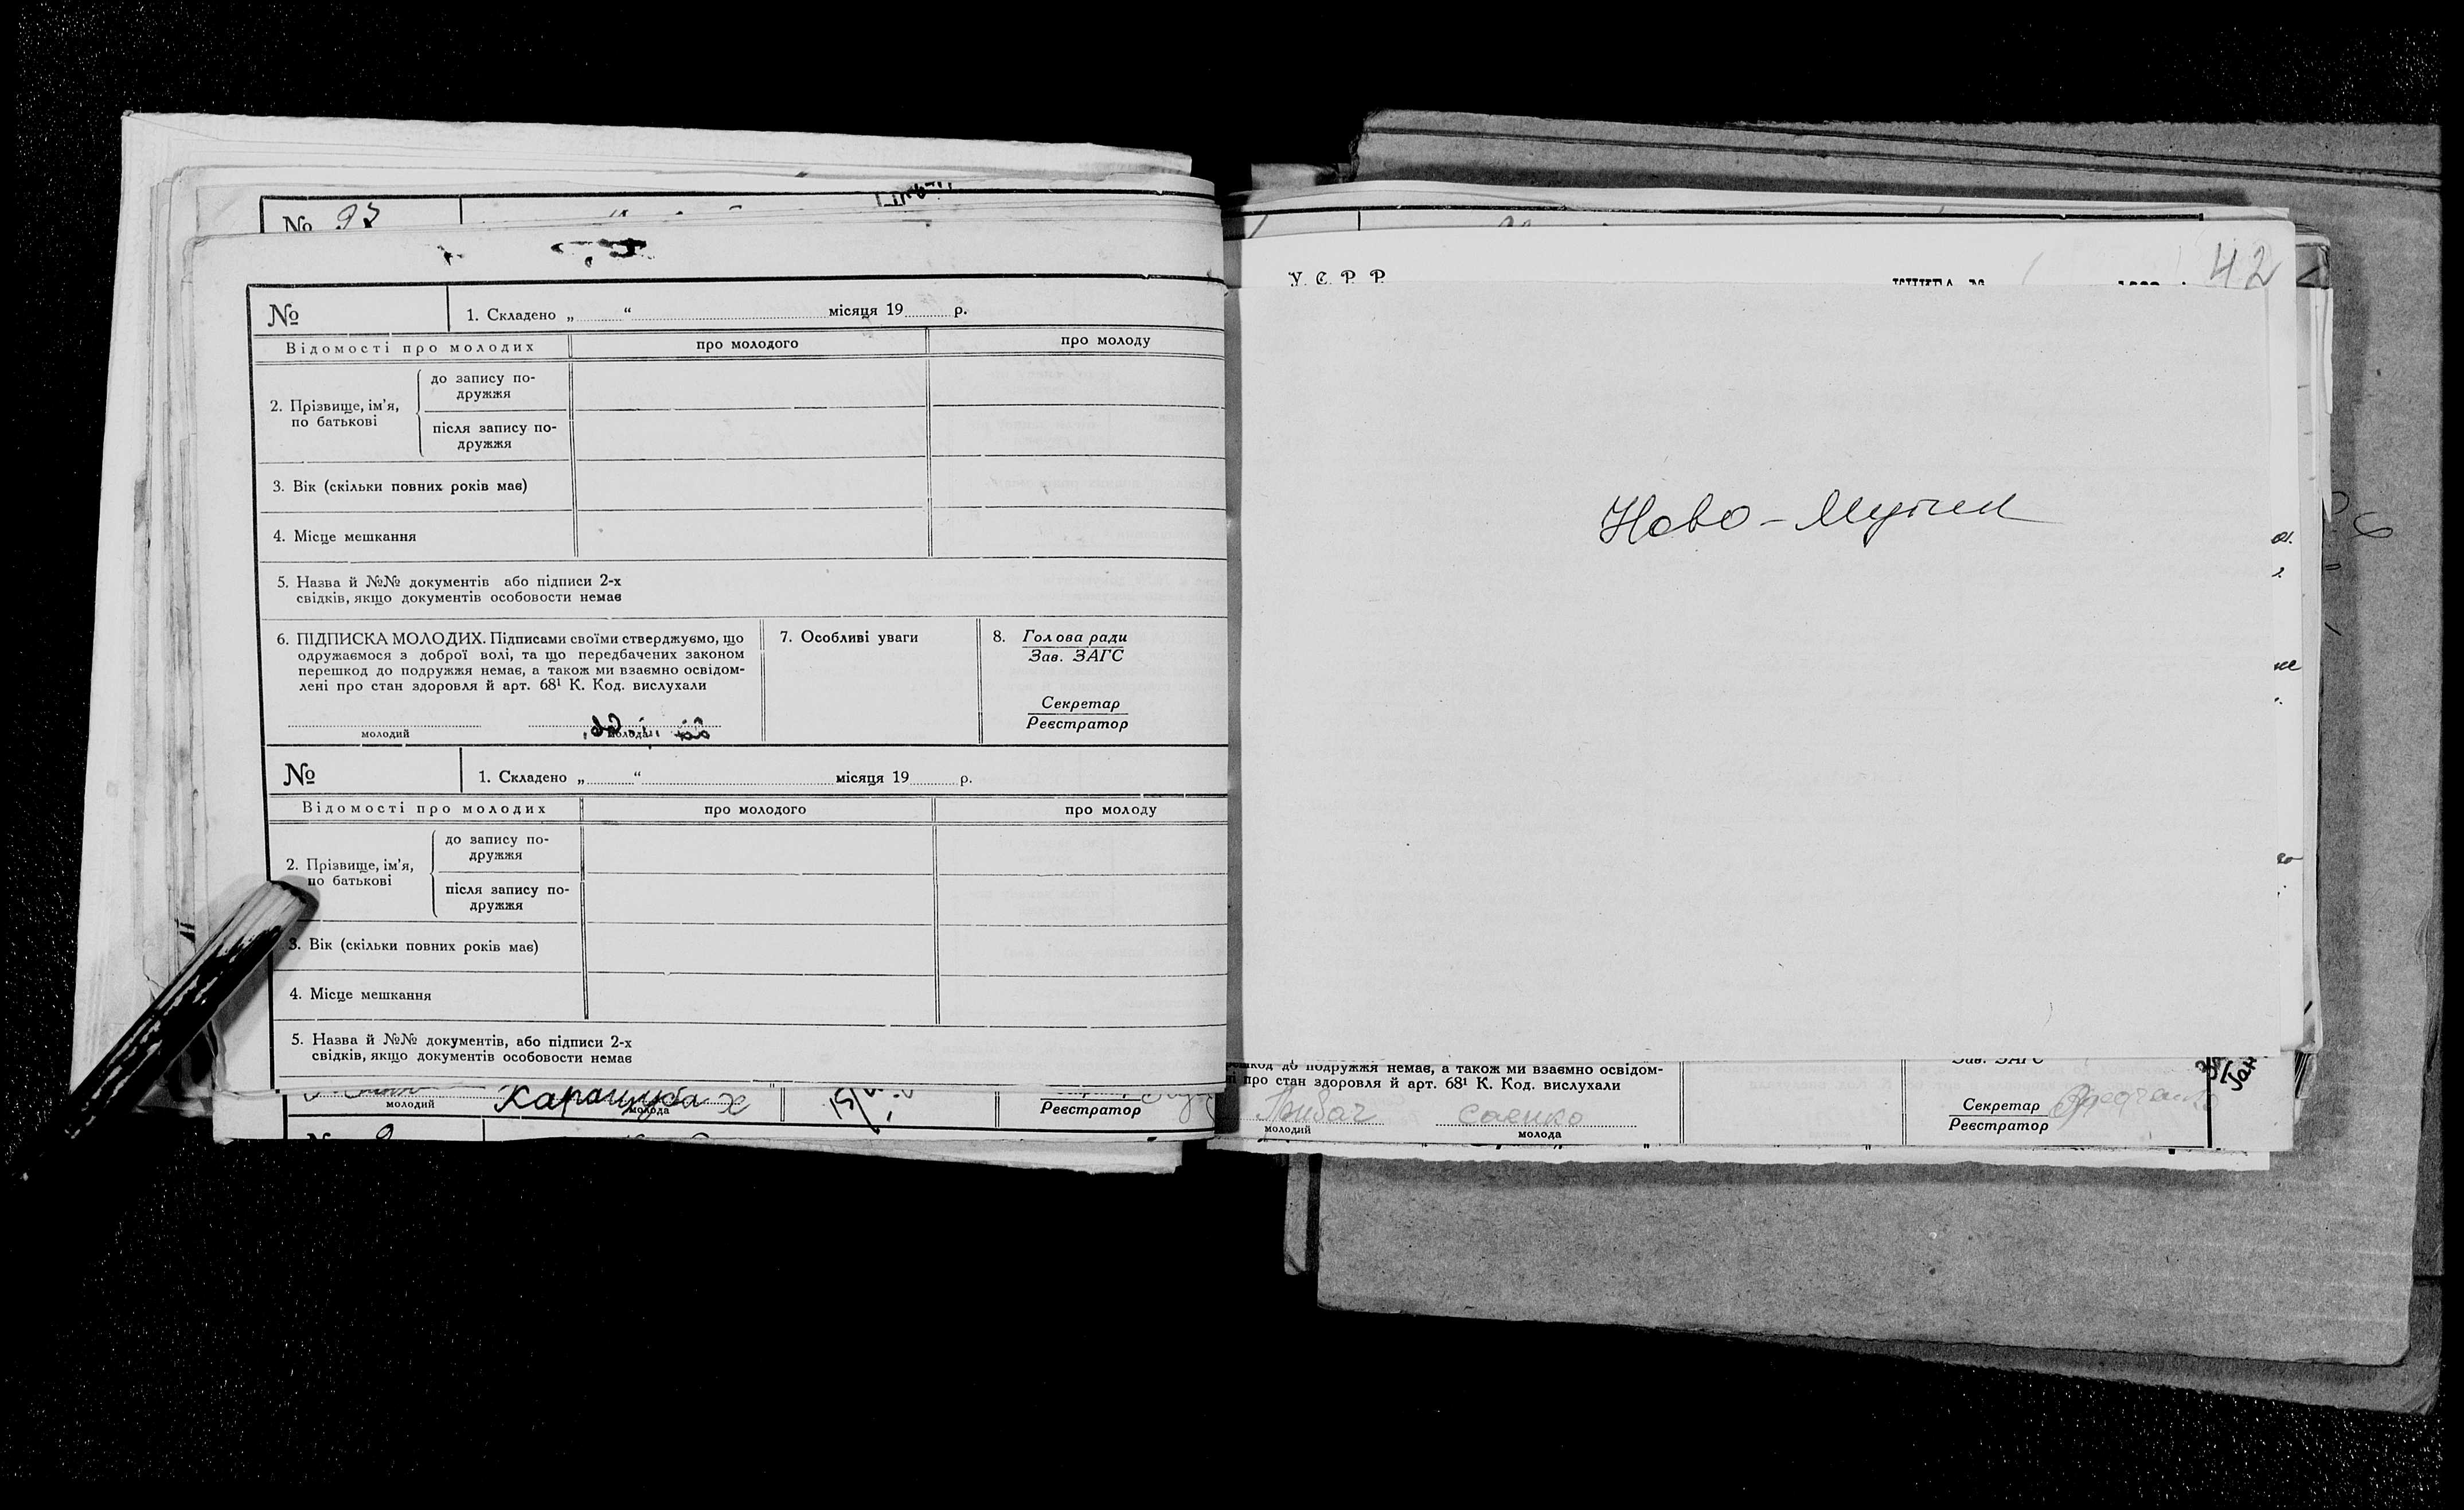 № 93
№
1. Складено „ “ місяця 19 р.
Відомості про молодих
про молодого
про молоду
2. Прізвище, ім’я, по батькові
до запису по-
дружжя
після запису по-
дружжя
3. Вік (скільки повних років має)
4. Місце мешкання
5. Назва й №№ документів або підписи 2-х
свідків, якщо документів особовости немає
6. ПІДПИСКА МОЛОДИХ. Підписами своїми стверджуємо, що
одружаємося з доброї волі, та що передбачених законом
перешкод до подружжя немає, а також ми взаємно освідом-
лені про стан здоровля й арт. 68¹ К. Код. вислухали
молодий
молода
7. Особливі уваги
8. Голова ради
Зав. ЗАГС
Секретар
Реєстратор
№
1. Складено „ “ місяця 19 р.
Відомості про молодих
про молодого
про молоду
2. Прізвище, ім’я,
по батькові
до запису по-
дружжя
після запису по-
дружжя
3. Вік (скільки повних років має)
4. Місце мешкання
5. Назва й №№ документів, або підписи 2-х
свідків, якщо документів особовости немає
молодий
Каращуба х
молода
Реєстратор
У. С. Р. Р.
КНИГА №
42
Ново-Мутин
перешкод до подружжя немає, а також ми взаємно освідом-
про стан здоровля й арт. 68¹ К. Код. вислухали
молодий
Саенко
молода
Зав. ЗАГС
Секретар
Реєстратор